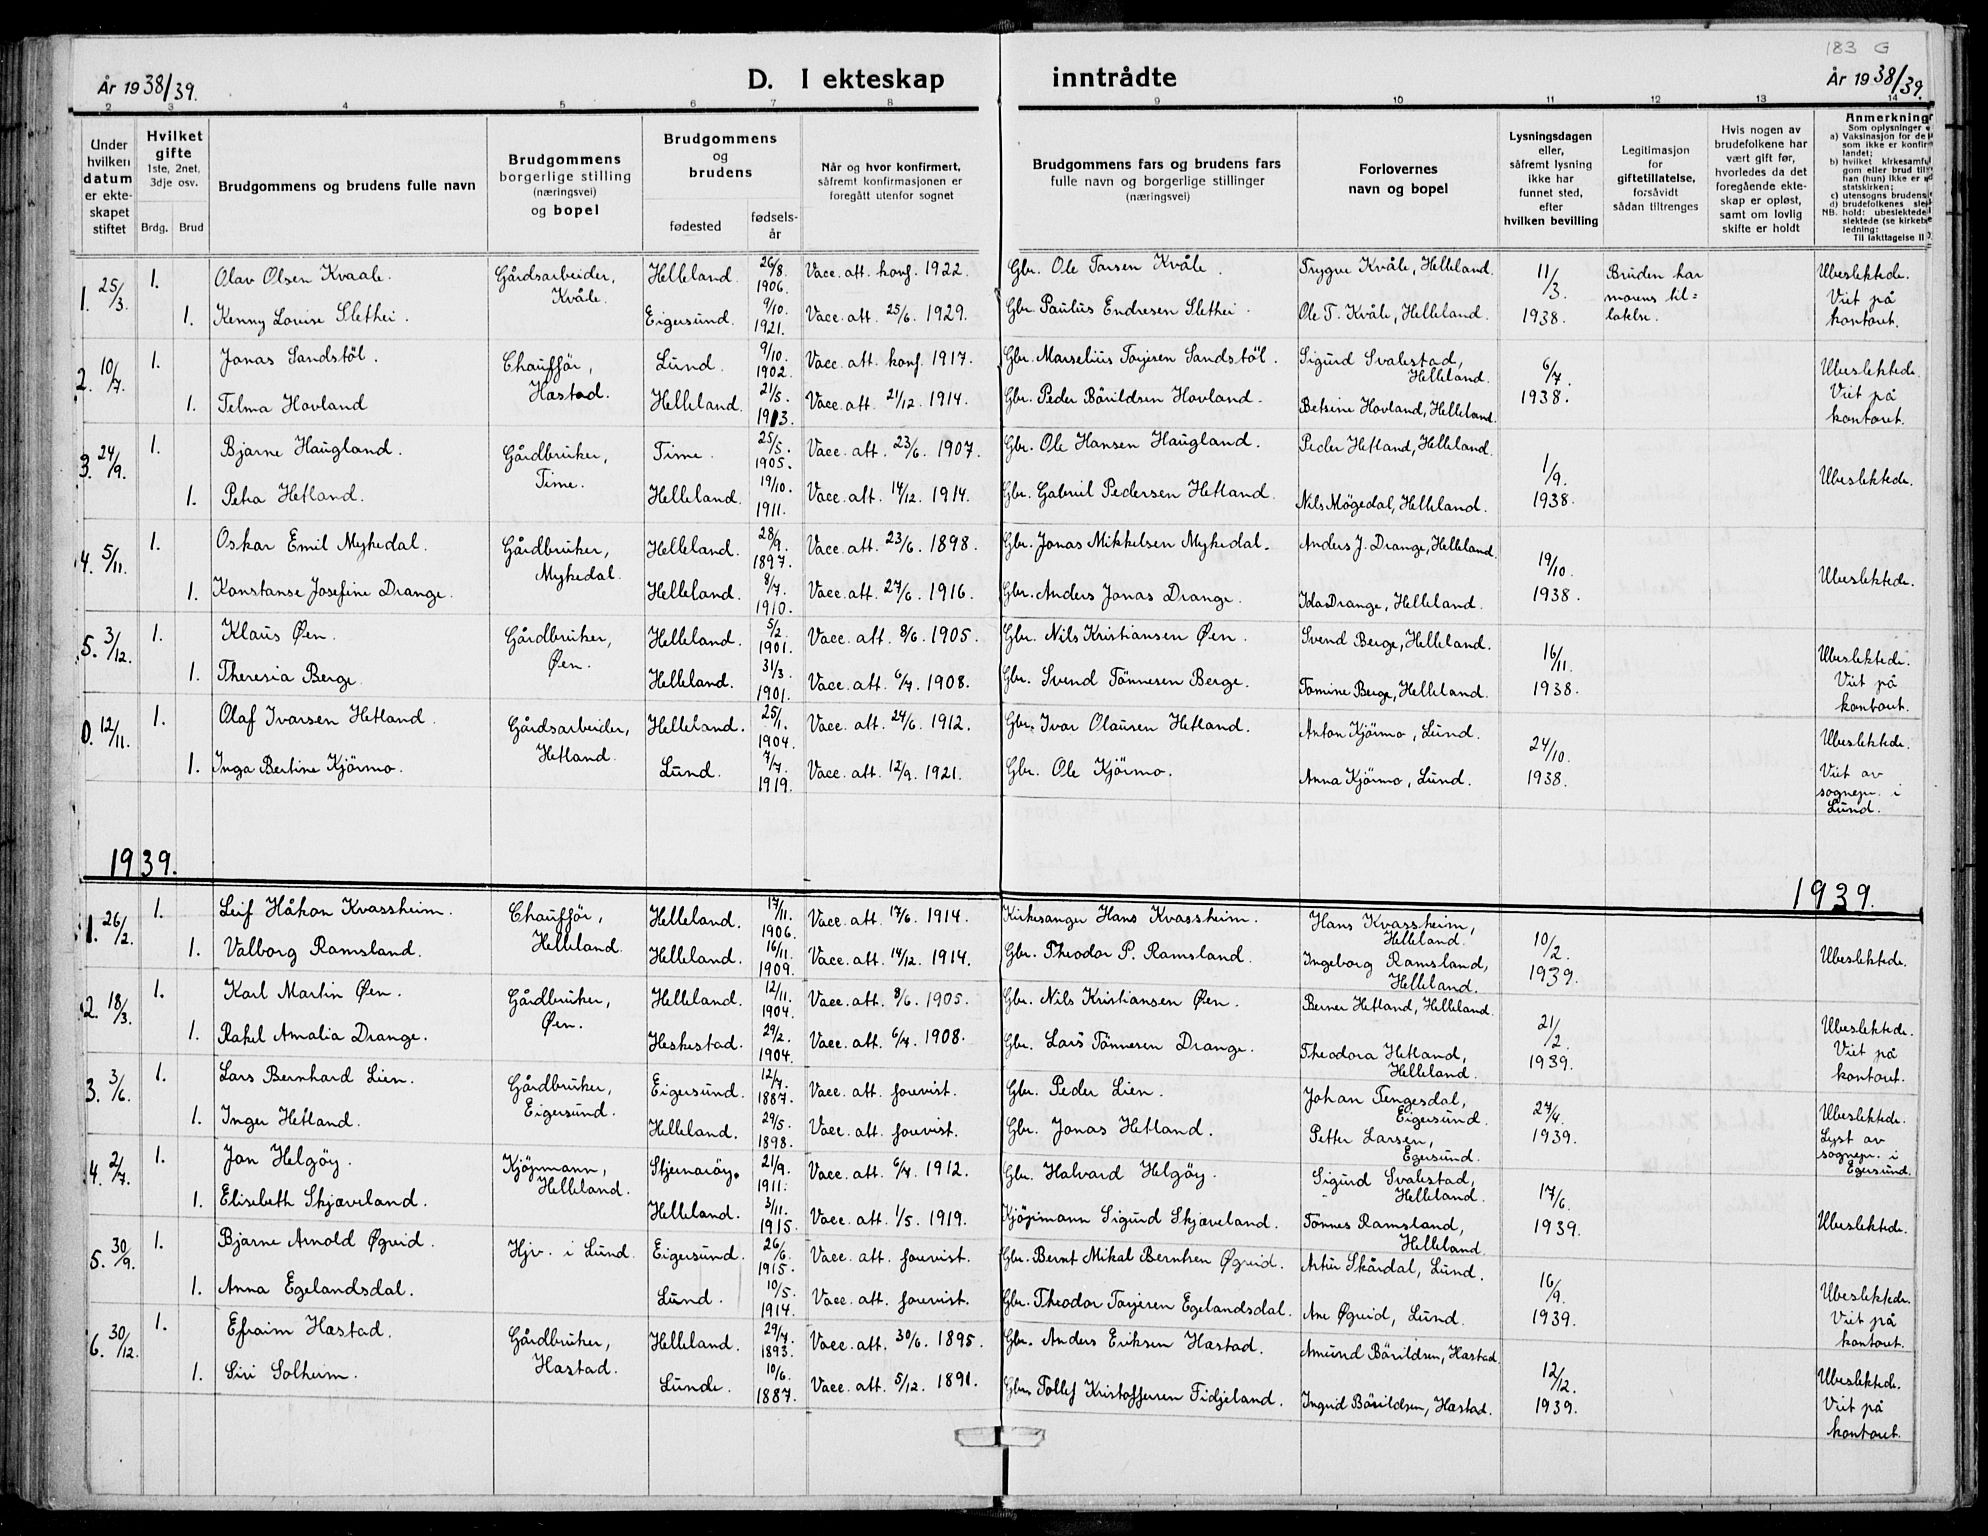 183 G
År 1938/39.
D. I ekteskap inntrådte
År 1938/39.
2 3 4 5 6 7 8 9 10 11 12 13 14
Under hvilken datum er ekteskapet stiftet
Hvilket gifte 1ste, 2net, 3dje osv.
Brdg. Brud
Brudgommens og brudens fulle navn
Brudgommens borgerlige stilling (næringsvei) og bopel
Brudgommens og brudens
fødested
fødselsår
Når og hvor konfirmert, såfremt konfirmasjonen er foregått utenfor sognet
Brudgommens fars og brudens fars fulle navn og borgerlige stillinger (næringsvei)
Forlovernes navn og bopel
Lysningsdagen eller, såfremt lysning ikke har funnet sted, efter hvilken bevilling
Legitimasjon for giftetillatelse, forsåvidt sådan tiltrenges
Hvis nogen av brudefolkene har vært gift før, hvorledes da det foregående ekteskap er opløst, samt om lovlig skifte er holdt
Anmerkning
1. 25/3. 1. Olav Olsen Kvaale. Gårdsarbeider, Kvåle. Helleland. 26/8. 1906. Vacc. att. konf. 1922. Gbr. Ole Tarsen Kvåle. Trygve Kvåle, Helleland. 11/3. 1938. Bruden har morens til= latelse. Ubeslektede. Viet på kontoret.
1. Kenny Lovise Slethei. Eigersund. 9/10. 1921. Vacc. att. 25/6. 1929. Gbr. Paulus Endresen Slethei. Ole T. Kvåle, Helleland.
2. 10/7. 1. Jonas Sandstöl. Chauffør, Hæstad. Lund. 9/10. 1902. Vacc. att. konf. 1917. Gbr. Marselius Torjesen Sandstöl. Sigurd Svalestad, Helleland. 6/7. 1938. Ubeslektede. Viet på kontoret.
1. Telma Hovland Helleland. 21/5. 1913. Vacc. att. 21/12. 1914. Gbr. Peder Bårildsen Hovland. Betsine Hovland, Helleland.
3. 24/9. 1. Bjarne Haugland. Gårdbruker, Time. Time. 25/5. 1905. Vacc. att. 23/6. 1907. Gbr. Ole Hansen Haugland. Peder Hetland, Helleland. 1/9. 1938. Ubeslektede.
1. Petra Hetland. Helleland. 19/10. 1911. Vacc. att. 14/12. 1914. Gbr. Gabriel Pedersen Hetland. Nils Møgedal, Helleland.
4. 5/11. 1. Oskar Emil Mykedal. Gårdbruker, Mykedal. Helleland. 28/9. 1897. Vacc. att. 23/6. 1898. Gbr. Jonas Mikkelsen Mykedal. Anders J. Drange, Helleland. 19/10. 1938. Ubeslektede.
1. Konstanse Josefine Drange. Helleland. 8/7. 1910. Vacc. att. 27/6. 1916. Gbr. Anders Jonas Drange. Ida Drange, Helleland.
5. 3/12. 1. Klaus Øen. Gårdbruker, Øen. Helleland. 5/2. 1901. Vacc. att. 8/6. 1905. Gbr. Nils Kristiansen Øen. Svend Berge, Helleland. 16/11. 1938. Ubeslektede. Viet på kontoret.
1. Theresia Berge. Helleland. 31/3. 1901. Vacc. att. 6/7. 1908. Gbr. Svend Tönnesen Berge. Tomine Berge, Helleland.
0. 12/11. 1. Olaf Ivarsen Hetland. Gårdsarbeider, Hetland. Helleland. 25/1. 1904. Vacc. att. 24/6. 1912. Gbr. Ivar Olausen Hetland. Anton Kjörmo, Lund. 24/10. 1938. Ubeslektede. Viet av sognepr. i Lund.
1. Inga Bertine Kjörmo. Lund. 7/7. 1919. Vacc. att. 12/9. 1921. Gbr. Ole Kjörmo. Anna Kjörmo, Lund.
1939. 1939.
1. 26/2. 1. Leif Håkon Kvassheim. Chauffør, Helleland. Helleland. 17/11. 1906. Vacc. att. 17/6. 1914. Kirkesanger Hans Kvassheim. Hans Kvassheim, Helleland. 10/2. 1939. Ubeslektede.
1. Valborg Ramsland. Helleland. 16/11. 1909. Vacc. att. 14/12. 1914. Gbr. Theodor P. Ramsland. Ingeborg Ramsland, Helleland.
2. 18/3. 1. Karl Martin Øen. Gårdbruker, Øen. Helleland. 12/11. 1904. Vacc. att. 8/6. 1905. Gbr. Nils Kristiansen Øen. Berner Hetland, Helleland. 21/2. 1939. Ubeslektede. Viet på kontoret.
1. Rakel Amalia Drange. Heskestad. 29/2. 1904. Vacc. att. 6/7. 1908. Gbr. Lars Tönnesen Drange. Theodora Hetland, Helleland.
3. 3/6. 1. Lars Bernhard Lien. Gårdbruker, Eigersund. Eigersund. 12/7. 1887. Vacc. att. forevist. Gbr. Peder Lien. Johan Tengesdal, Eigersund. 27/4. 1939. Ubeslektede. Lyst av sognepr. i Egersund.
1. Inger Hetland. Helleland. 29/5. 1898. Vacc. att. forevist. Gbr. Jonas Hetland. Petter Larsen, Egersund.
4. 2/7. 1. Jan Helgöy. Kjöpmann, Helleland. Stjernaröy. 21/9. 1911. Vacc. att. 6/7. 1912. Gbr. Halvard Helgöy. Sigurd Svalestad, Helleland. 17/6. 1939. Ubeslektede.
1. Elisabeth Skjæveland. Helleland. 3/11. 1915. Vacc. att. 1/5. 1919. Kjöpmann Sigurd Skjæveland. Tönnes Ramsland, Helleland.
5. 30/9. 1. Bjarne Arnold Øgreid. Hjv. i Lund. Eigersund. 26/6. 1915. Vacc. att. forevist. Gbr. Bernt Mikal Berntsen Øgreid. Artur Skårdal, Lund. 16/9. 1939. Ubeslektede. Viet på kontoret.
1. Anna Egelandsdal. Lund. 10/5. 1914. Vacc. att. forevist. Gbr. Theodor Torjesen Egelandsdal. Ane Øgreid, Lund.
6. 30/12. 1. Efraim Hæstad. Gårdbruker, Hæstad. Helleland. 29/7. 1893. Vacc. att. 30/6. 1895. Gbr. Anders Eriksen Hæstad. Amund Bårildsen, Hæstad. 12/12. 1939. Ubeslektede. Viet på kontoret.
1. Siri Solheim. Lunde. 10/6. 1887. Vacc. att. 5/12. 1891. Gbr. Tollef Kristoffersen Fidjeland. Ingrid Bårildsen, Hæstad.